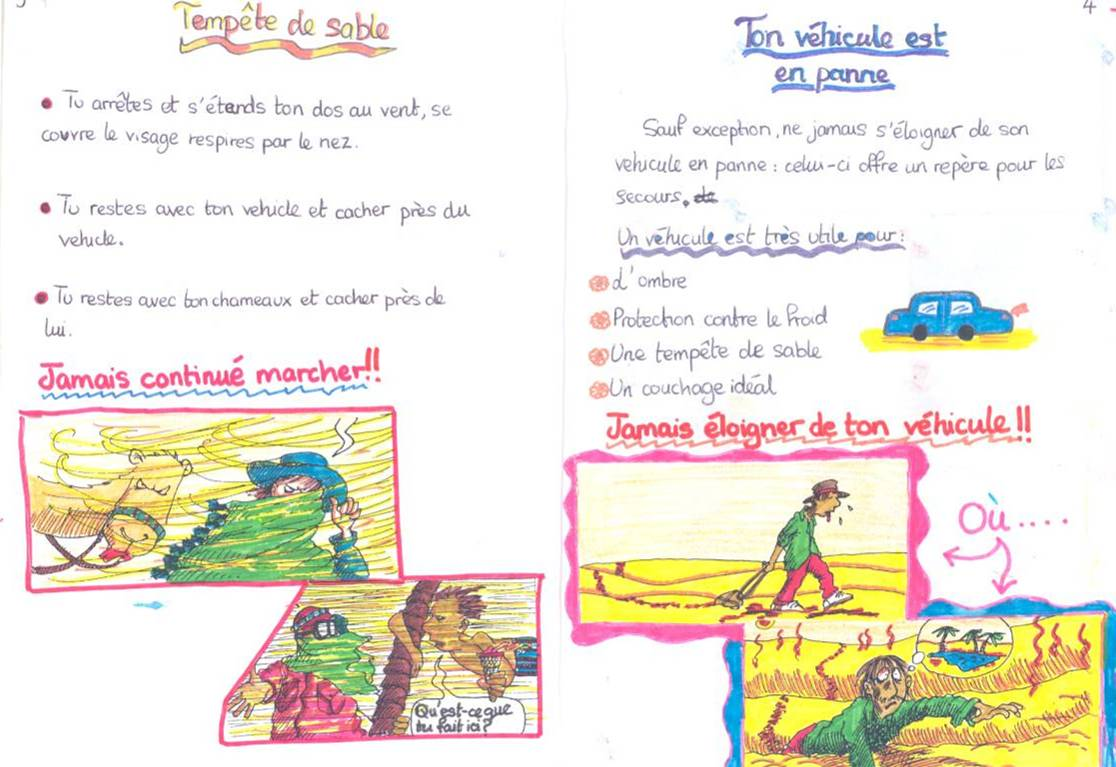 Tempête de sable
• Tu arrêtes et s'étends ton dos au vent, se
couvre le visage respires par le nez.
• Tu restes avec ton vehicle et cacher près du
vehicle.
• Tu restes avec ton chameaux et cacher près de
lui.
Jamais continué marcher!!
Qu'est-ce que
tu fait ici?
4
Ton véhicule est
en panne
Sauf exception, ne jamais s'éloigner de son
vehicule en panne : celui-ci offre un repère pour les
secours,
Un véhicule est très utile pour :
d'ombre
Protection contre le froid
Une tempête de sable
Un couchage idéal
Jamais éloigner de ton véhicule !!
Où....